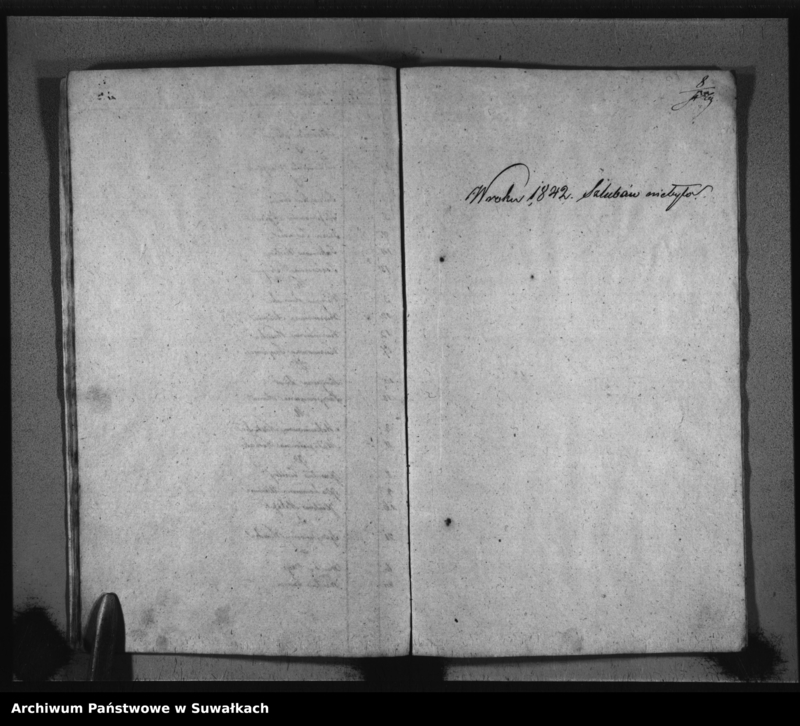 8
W roku 1842. Szlubów niebyło.
Archiwum Państwowe w Suwałkach